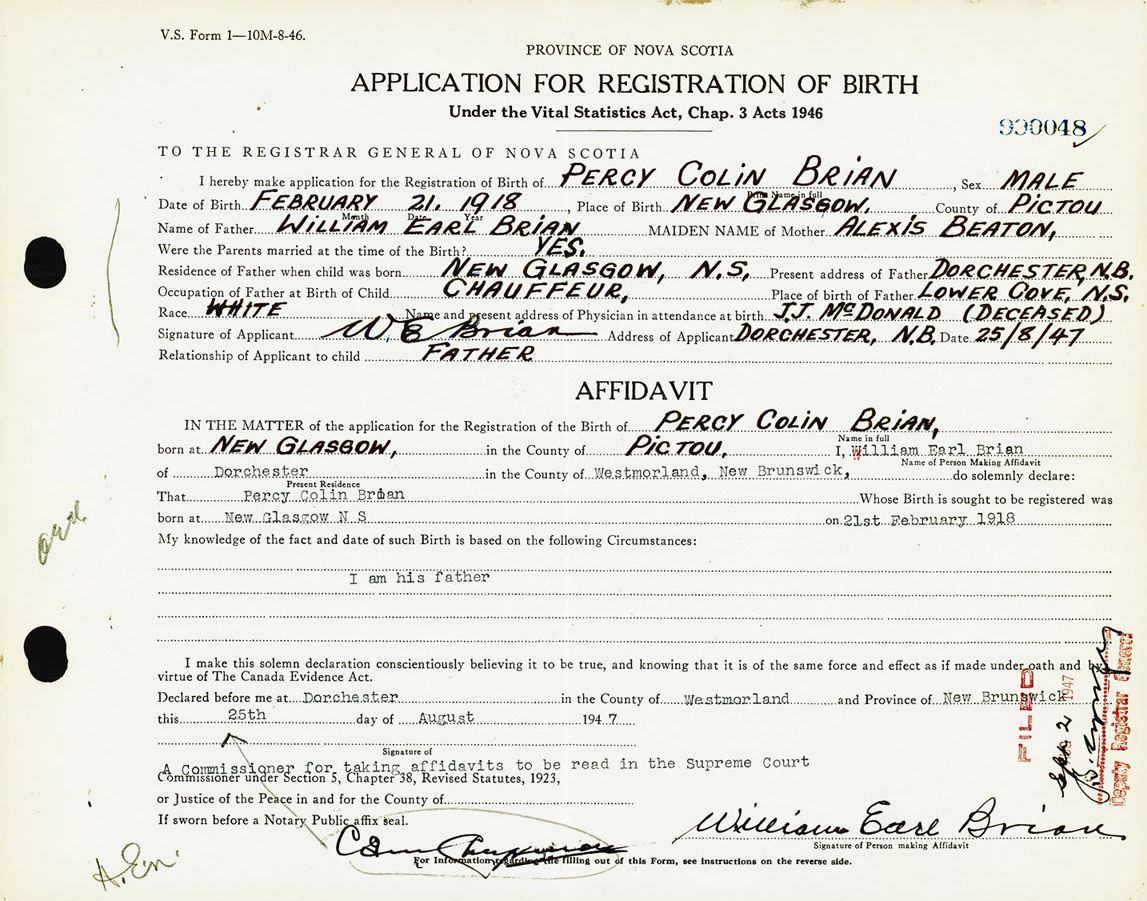 V.S. Form 1—10M-8-46.
PROVINCE OF NOVA SCOTIA
APPLICATION FOR REGISTRATION OF BIRTH
Under the Vital Statistics Act, Chap. 3 Acts 1946
990048
TO THE REGISTRAR GENERAL OF NOVA SCOTIA
I hereby make application for the Registration of Birth of PERCY COLIN BRIAN, Sex MALE
Name in full
Date of Birth FEBRUARY 21, 1918, Place of Birth NEW GLASGOW, County of PICTOU
Month Date Year
Name of Father WILLIAM EARL BRIAN MAIDEN NAME of Mother ALEXIS BEATON,
Were the Parents married at the time of the Birth? YES.
Residence of Father when child was born NEW GLASGOW, N.S. Present address of Father DORCHESTER, N.B.
Occupation of Father at Birth of Child CHAUFFEUR, Place of birth of Father LOWER COVE, N.S.
Race WHITE Name and present address of Physician in attendance at birth J.J. McDONALD (DECEASED)
Signature of Applicant W E Brian Address of Applicant DORCHESTER, N.B. Date 25/8/47
Relationship of Applicant to child FATHER
AFFIDAVIT
IN THE MATTER of the application for the Registration of the Birth of PERCY COLIN BRIAN,
Name in full
born at NEW GLASGOW, in the County of PICTOU, I, William Earl Brian
Name of Person Making Affidavit
of Dorchester in the County of Westmorland, New Brunswick, do solemnly declare:
Present Residence
That Percy Colin Brian Whose Birth is sought to be registered was
born at New Glasgow N S on 21st February 1918
My knowledge of the fact and date of such Birth is based on the following Circumstances:
I am his father
I make this solemn declaration conscientiously believing it to be true, and knowing that it is of the same force and effect as if made under oath and by
virtue of The Canada Evidence Act.
Declared before me at Dorchester in the County of Westmorland and Province of New Brunswick
this 25th day of August 1947
Signature of
A Commissioner for taking affidavits to be read in the Supreme Court
Commissioner under Section 5, Chapter 38, Revised Statutes, 1923,
or Justice of the Peace in and for the County of
If sworn before a Notary Public affix seal.
William Earl Brian
Signature of Person making Affidavit
For Information regarding the filling out of this Form, see instructions on the reverse side.
FILED
Sep. 2 1947
Deputy Registrar General